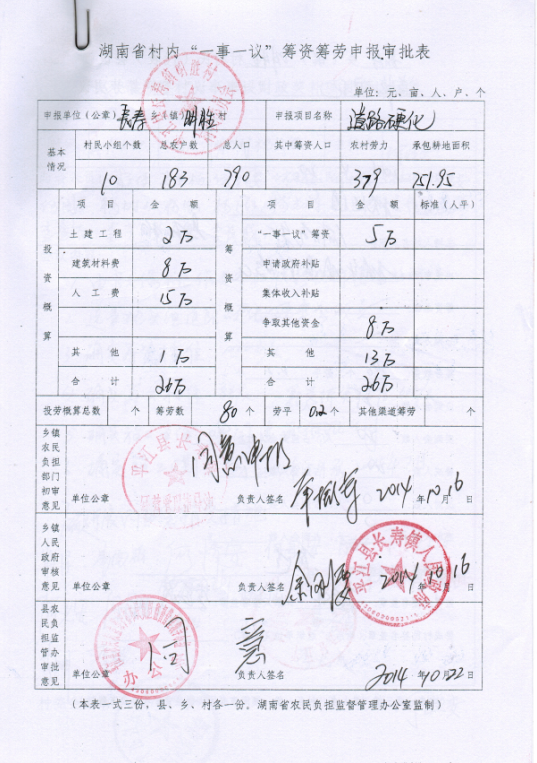 湖南省村内“一事一议”筹资筹劳申报审批表
单位：元、亩、人、户、个
申报单位（公章）长寿乡镇明胜村 申报项目名称 道路硬化
基本情况 村民小组个数 总农户数 总人口 其中筹资人口 农村劳力 承包耕地面积
10 183 790 379 751.95
项目 金额 项目 金额 标准（人平）
投资概算 筹资概算
土建工程 2万 “一事一议”筹资 5万
建筑材料费 8万 申请政府补贴
人工费 15万 集体收入补贴
争取其他资金 8万
其他 1万 其他 13万
合计 26万 合计 26万
投劳概算总数 个 筹劳数 80个 劳平 0.2个 其他渠道筹劳 个
乡镇农民负担部门初审意见 同意申报
平江县长
单位公章 负责人签名 2014年10月16日
乡镇人民政府审核意见
平江县长寿镇人民政府
单位公章 负责人签名 2014年10月16日
县农民负担监管办审批意见 同意
办公
单位公章 负责人签名 2014年10月22日
（本表一式三份，县、乡、村各一份，湖南省农民负担监督管理办公室监制）